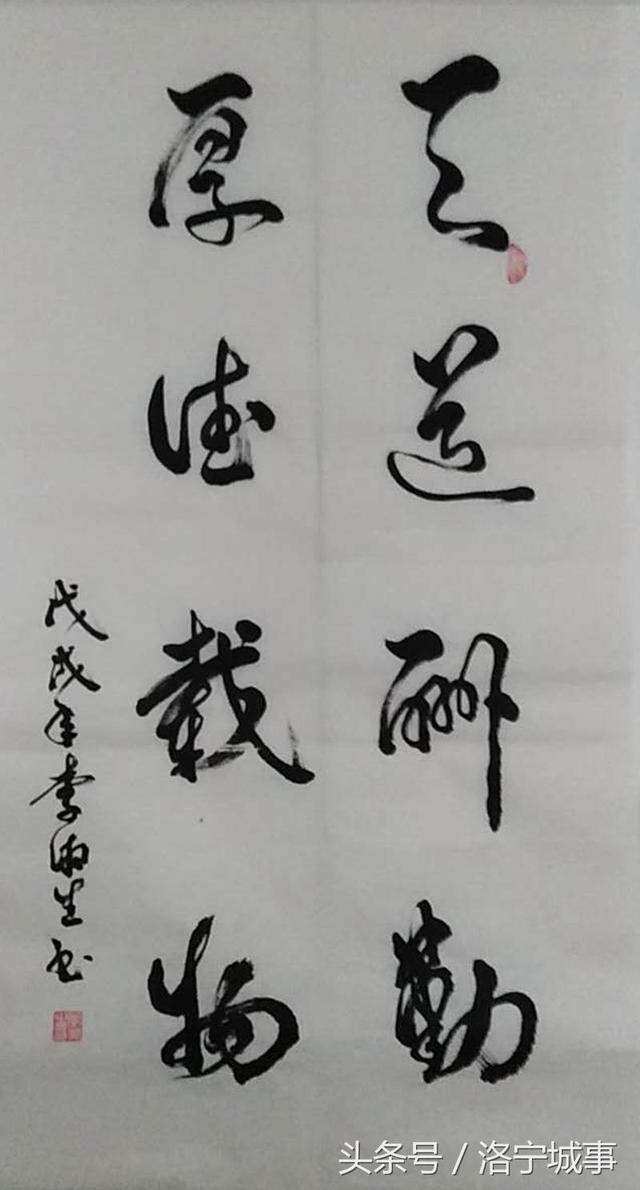 天道酬勤
厚德载物
戊戌年李湘生书
头条号/洛宁城事